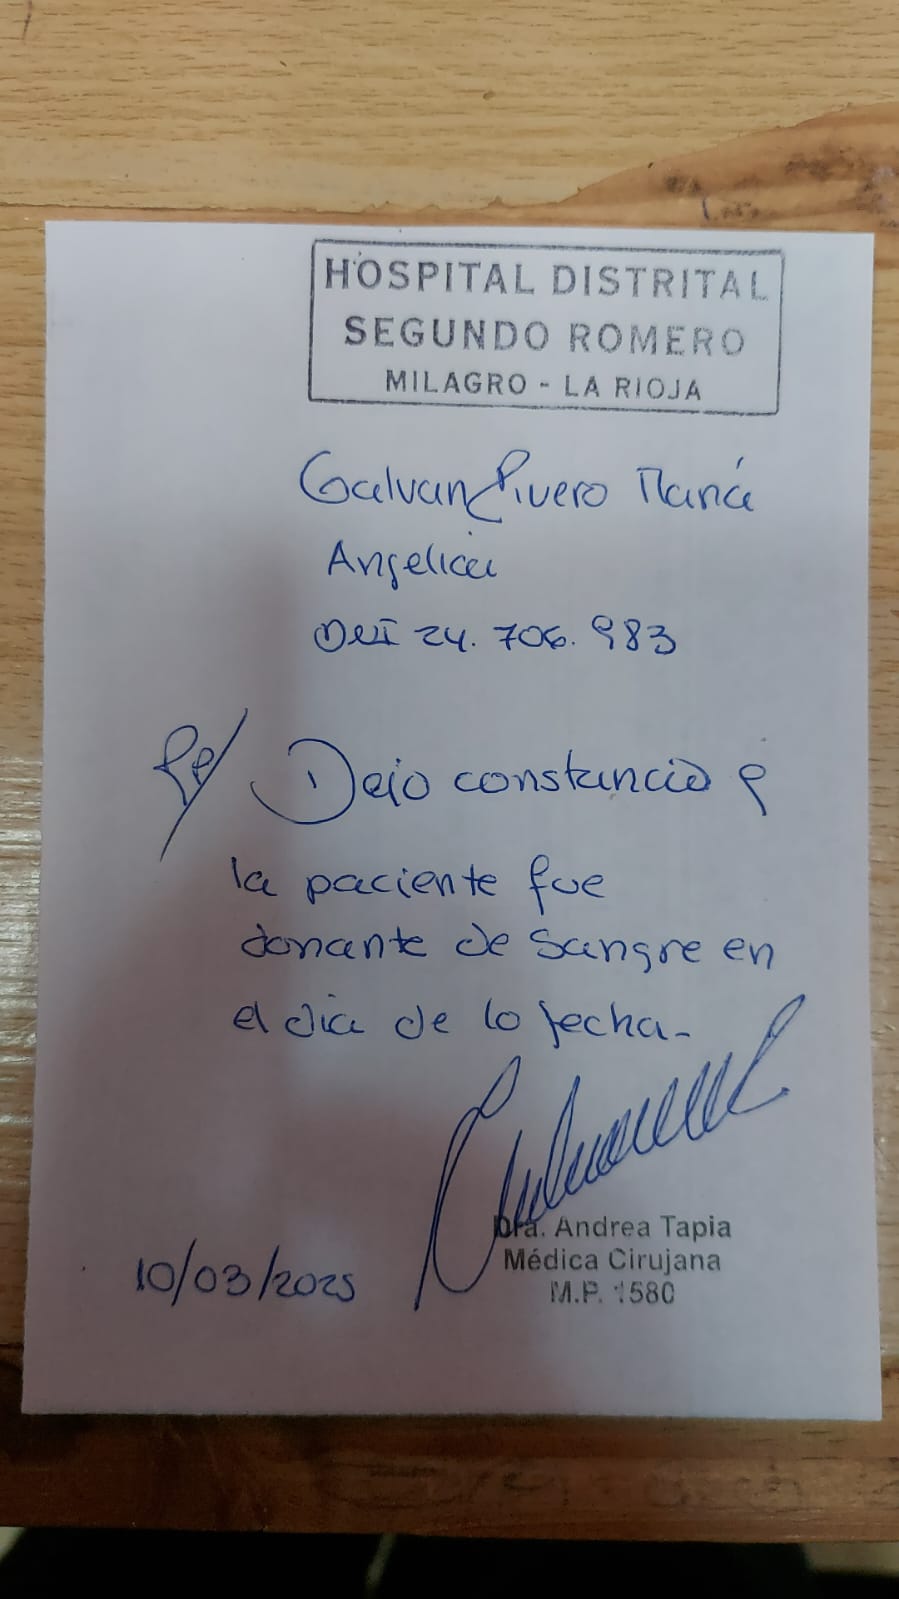 HOSPITAL DISTRITAL
SEGUNDO ROMERO
MILAGRO - LA RIOJA
Galvan Rivero María
Angelica
DNI 24.706.983
Rp/ Dejo constancia q
la paciente fue
donante de sangre en
el dia de la fecha-
Dra. Andrea Tapia
Médica Cirujana
M.P. 1580
10/03/2025